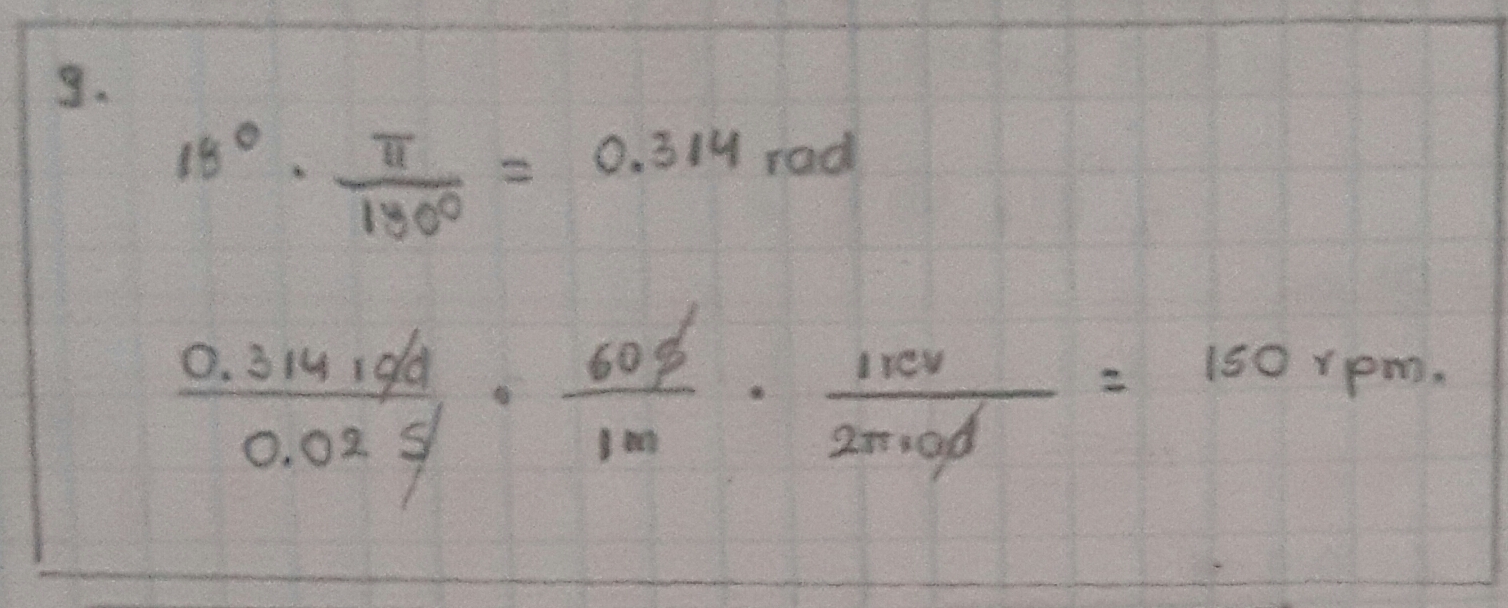 9.
18° · π/180° = 0.314 rad
0.314 rad/0.02 s · 60 s/1 m · 1 rev/2π rad = 150 rpm.